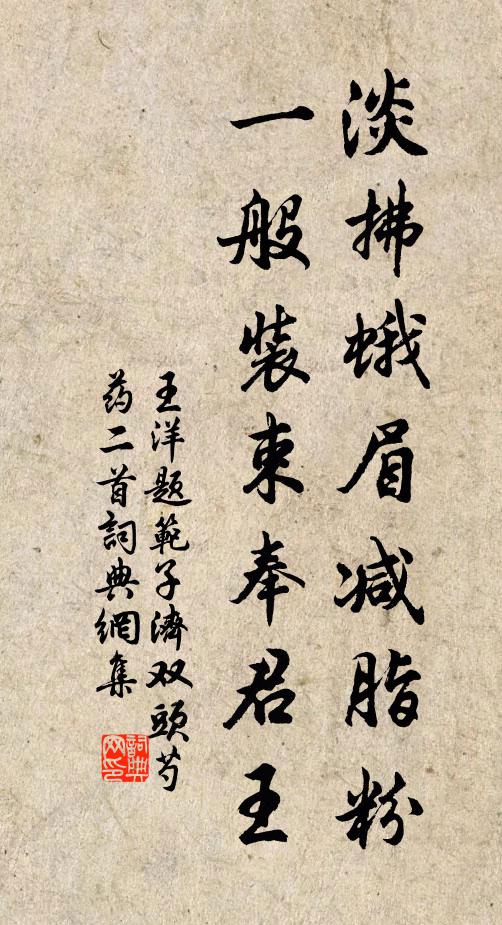 淡拂蛾眉减脂粉
一般裝束奉君王
王洋题範子濟双頭芍
药二首詞典網集
詞典
网印